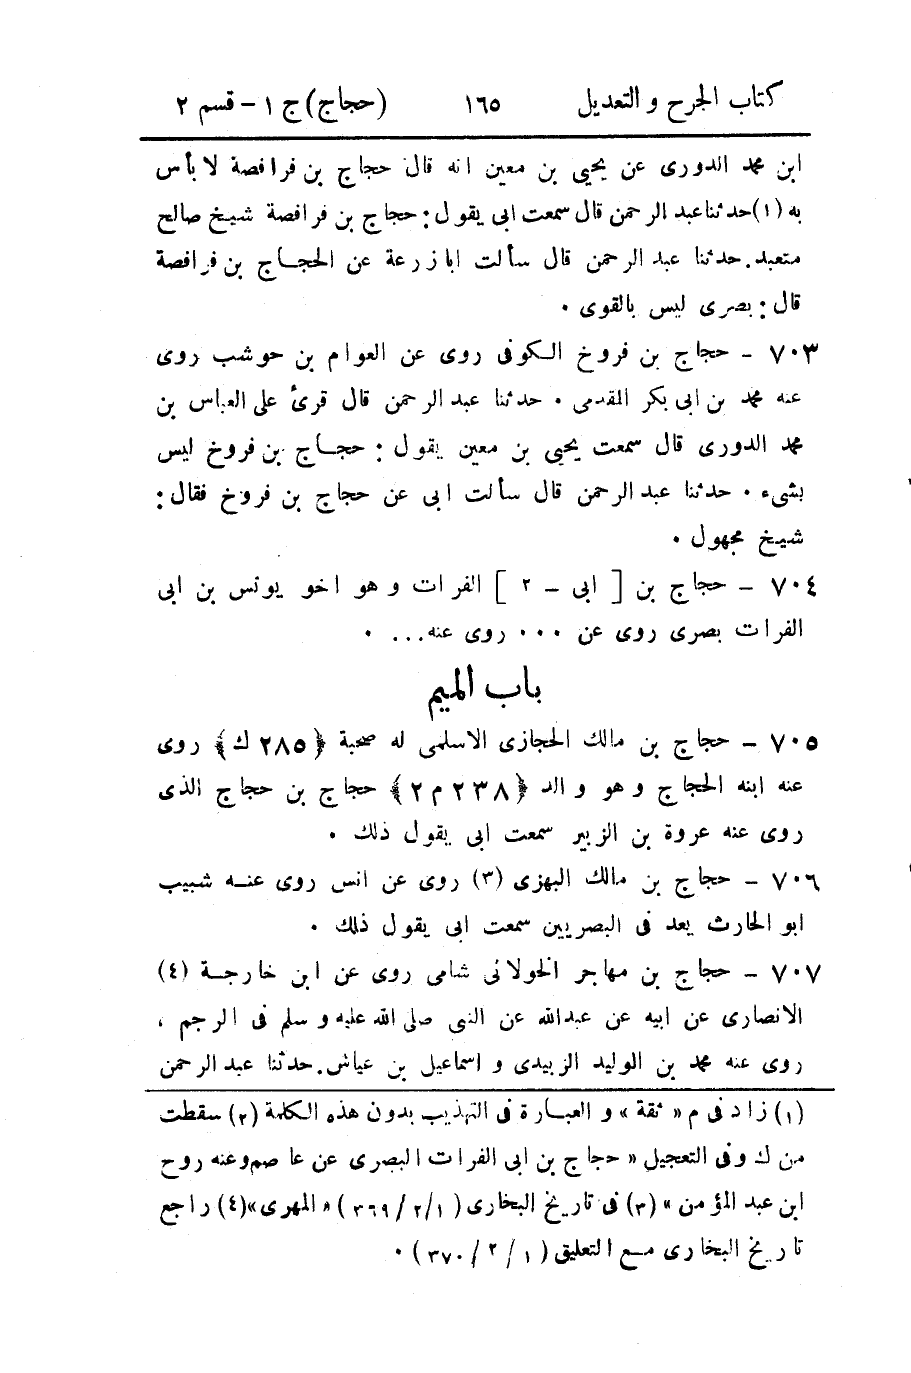 كتاب الجرح و التعديل ١٦٥ (حجاج) ج ١ – قسم ٢
ابن محمد الدورى عن يحيى بن معين انه قال حجاج بن فرافصة لا بأس
به (١) حدثنا عبد الرحمن قال سمعت ابى يقول: حجاج بن فرافصة شيخ صالح
متعبد. حدثنا عبد الرحمن قال سألت ابا زرعة عن الحجاج بن فرافصة
قال: بصرى ليس بالقوى .
٧٠٣ – حجاج بن فروخ الكوفى روى عن العوام بن حوشب روى
عنه محمد بن ابى بكر المقدمى . حدثنا عبد الرحمن قال قرئ على العباس بن
محمد الدورى قال سمعت يحيى بن معين يقول: حجاج بن فروخ ليس
بشىء . حدثنا عبد الرحمن قال سألت ابى عن حجاج بن فروخ فقال:
شيخ مجهول .
٧٠٤ – حجاج بن [ ابى – ٢ ] الفرات و هو اخو يونس بن ابى
الفرات بصرى روى عن ... روى عنه... .
باب الميم
٧٠٥ – حجاج بن مالك الحجازى الاسلمى له صحبة ﴿٢٨٥ ك﴾ روى
عنه ابنه الحجاج و هو والد ﴿٢٣٨ م ٢﴾ حجاج بن حجاج الذى
روى عنه عروة بن الزبير سمعت ابى يقول ذلك .
٧٠٦ – حجاج بن مالك البهزى (٣) روى عن انس روى عنه شبيب
ابو الحارث يعد فى البصريين سمعت ابى يقول ذلك .
٧٠٧ – حجاج بن مهاجر الخولانى شامى روى عن ابن خارجة (٤)
الانصارى عن ابيه عن عبدالله عن النبى صلى الله عليه و سلم فى الرجم ،
روى عنه محمد بن الوليد الزبيدى و اسماعيل بن عياش. حدثنا عبد الرحمن
(١) زاد فى م « ثقة » و العبارة فى التهذيب بدون هذه الكلمة (٢) سقطت
من ك وفى التعجيل « حجاج بن ابى الفرات البصرى عن عاصم وعنه روح
ابن عبد المؤمن » (٣) فى تاريخ البخارى (١/٢/٣٦٩) « المهرى» (٤) راجع
تاريخ البخارى مع التعليق (١/٢/٣٧٠) .